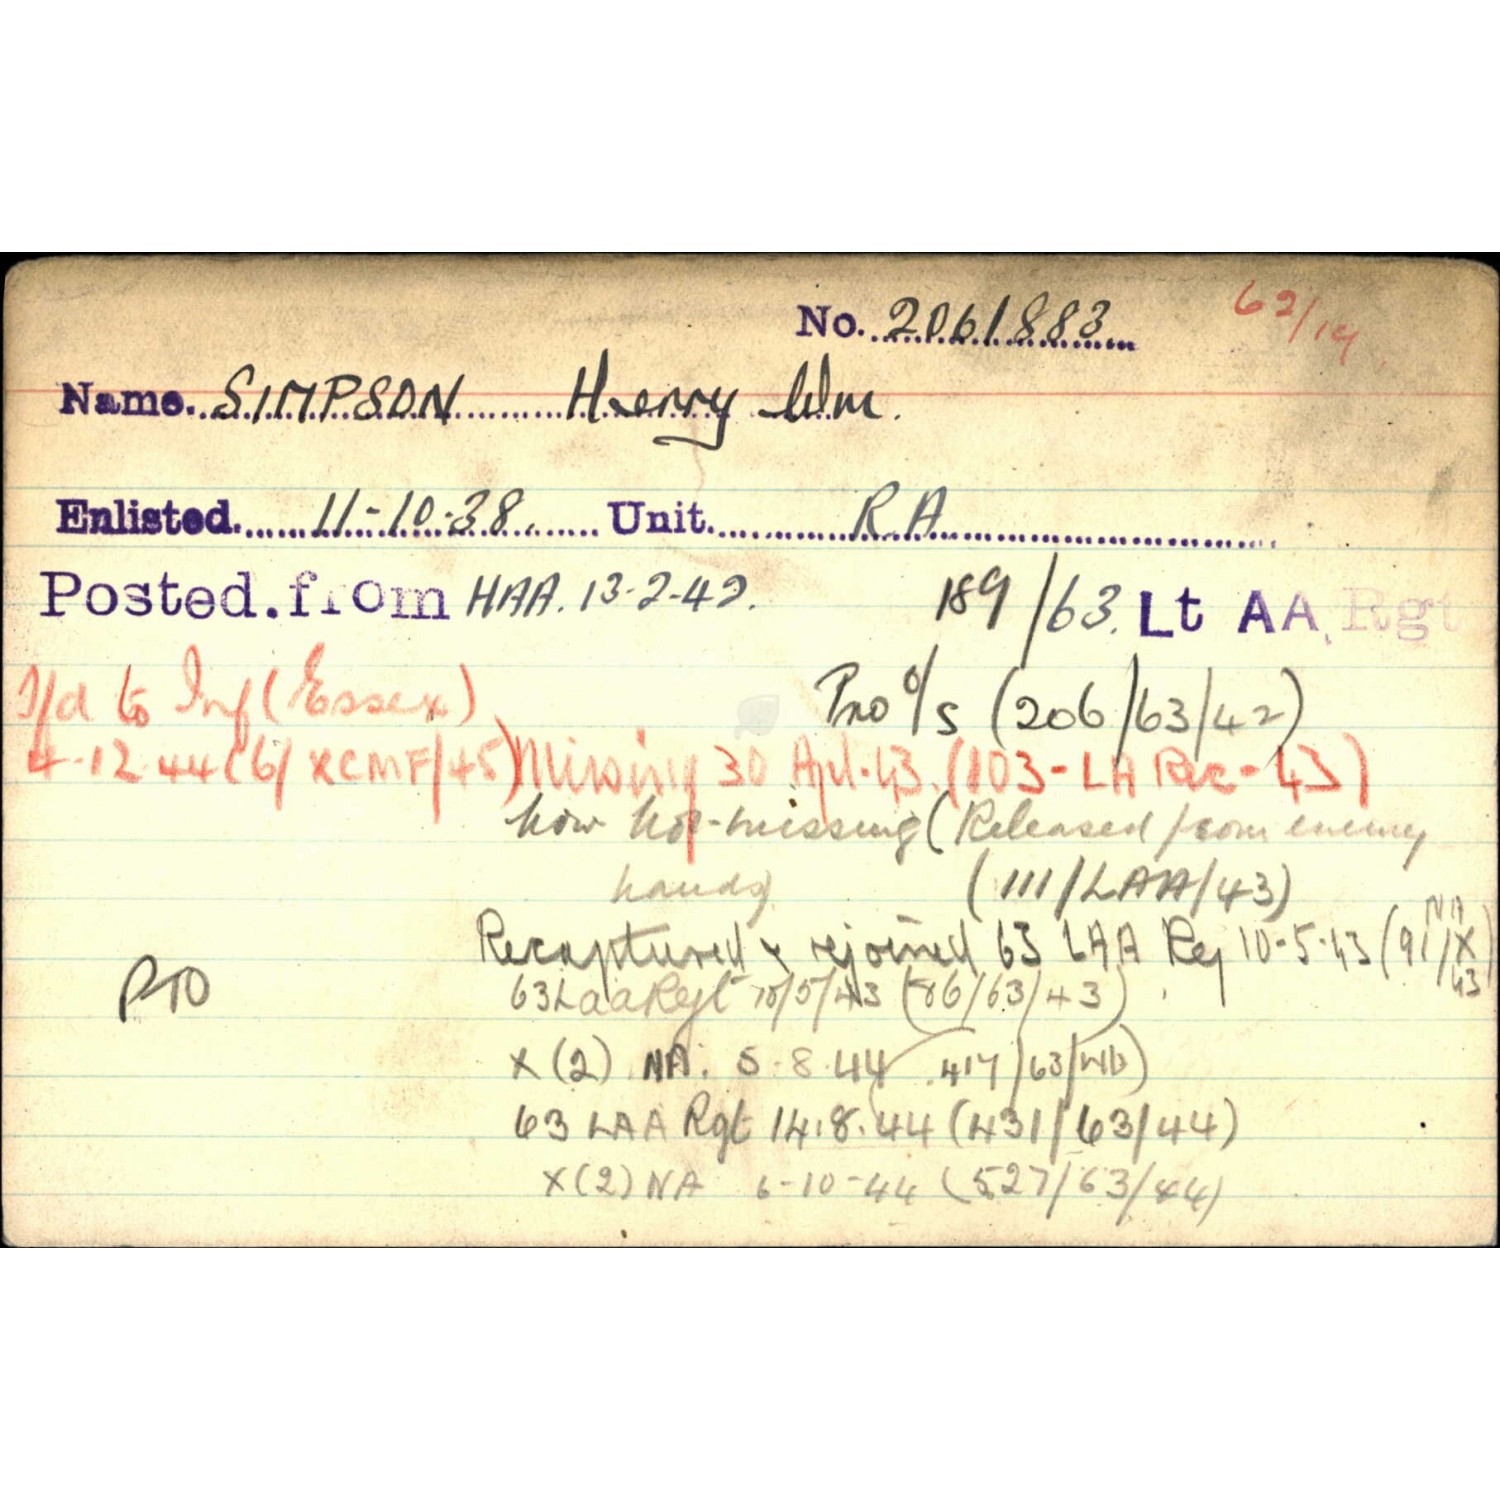 No. 2061883 62/14
Name. SIMPSON Henry Wm.
Enlisted. 11-10-38. Unit. RA
Posted. from HAA. 13-2-42. 189/63. Lt AA. Rgt
T/d to Inf (Essex) Pro o/s (206/63/42)
4-12-44 (6/XCMF/45) Missing 30 Apl. 43. (103-LA Rec-43)
now not missing (Released from enemy
hands) (111/LAA/43)
Recaptured & rejoined 63 LAA Reg 10-5-43 (91/X NA 43)
PTO
63 Laa Regt 10/5/43 (86/63/43)
X(2) NA. 5-8-44 417/63/
63 LAA Rgt 14.8.44 (431/63/44)
X(2) NA 6-10-44 (527/63/44)